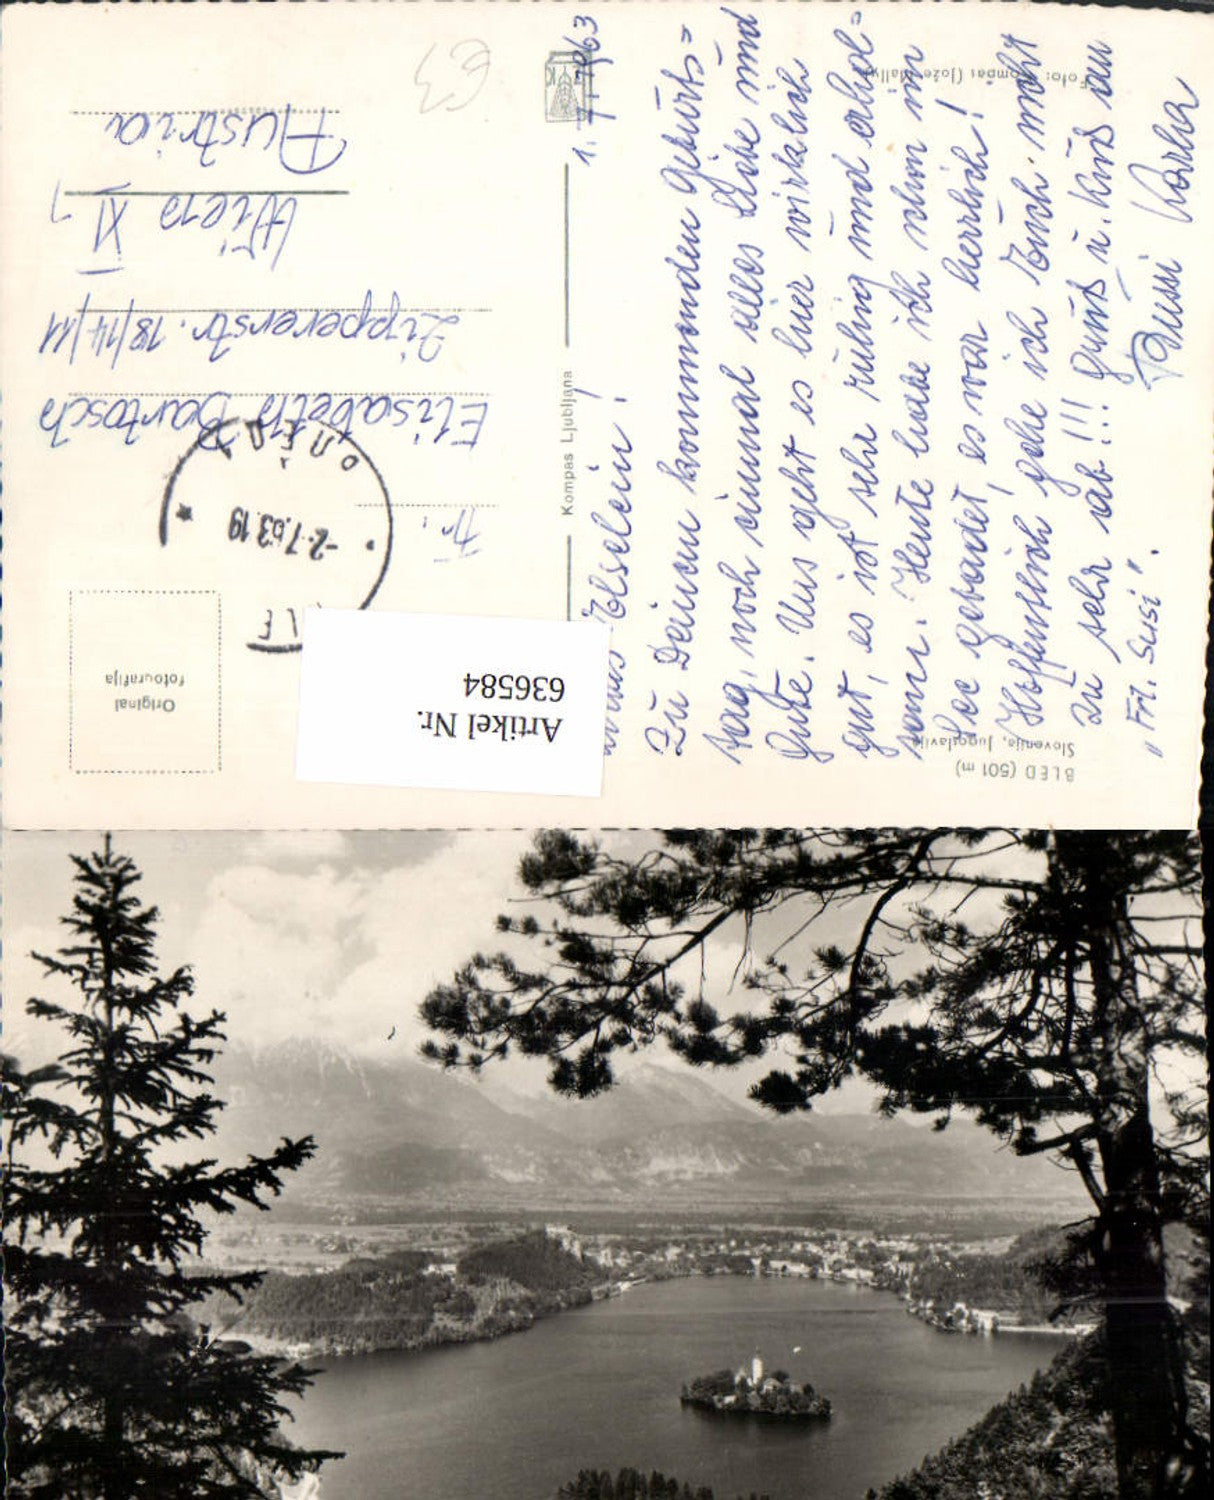 1. 7. 1963
Elselein!
Zu Deinem kommenden Geburts=
tag, noch einmal alles Liebe und
Gute. Uns geht es hier wirklich
gut, es ist sehr ruhig und erhol=
sam. Heute habe ich schon im
See gebadet, es war herrlich!
Hoffentlich gehe ich Euch nicht
zu sehr ab!!! Gruß u. Kuß an
„Frl. Susi". Bussi Karla
BLED (501 m)
Slovenija, Jugoslavija
Foto: Kompas (Jože Mally)
Kompas Ljubljana
Original
fotografija
BLED
-2.-7.63.19
Fr.
Elisabeth Bartosch
Zippererstr. 18/14/11
Wien XI
Austria
€3
Artikel Nr.
636584